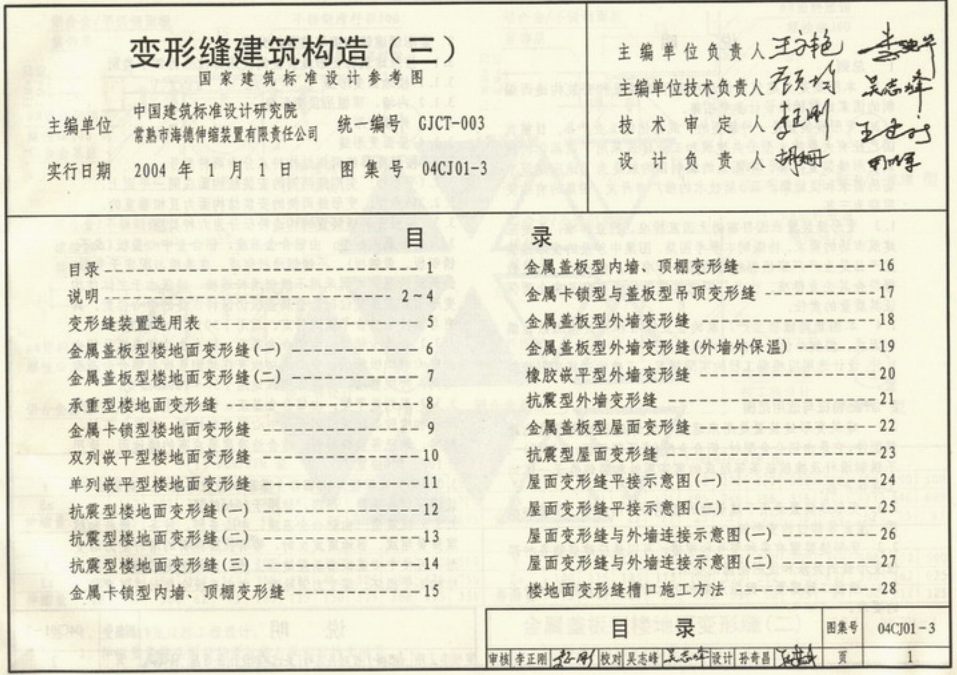 变形缝建筑构造（三）
国家建筑标准设计参考图
主编单位 中国建筑标准设计研究院
常熟市海德伸缩装置有限责任公司
统一编号 GJCT-003
实行日期 2004 年 1 月 1 日 图集号 04CJ01-3
主编单位负责人
主编单位技术负责人
技术审定人
设计负责人
目 录
目录 1
说明 2~4
变形缝装置选用表 5
金属盖板型楼地面变形缝(一) 6
金属盖板型楼地面变形缝(二) 7
承重型楼地面变形缝 8
金属卡锁型楼地面变形缝 9
双列嵌平型楼地面变形缝 10
单列嵌平型楼地面变形缝 11
抗震型楼地面变形缝(一) 12
抗震型楼地面变形缝(二) 13
抗震型楼地面变形缝(三) 14
金属卡锁型内墙、顶棚变形缝 15
金属盖板型内墙、顶棚变形缝 16
金属卡锁型与盖板型吊顶变形缝 17
金属盖板型外墙变形缝 18
金属盖板型外墙变形缝(外墙外保温) 19
橡胶嵌平型外墙变形缝 20
抗震型外墙变形缝 21
金属盖板型屋面变形缝 22
抗震型屋面变形缝 23
屋面变形缝平接示意图(一) 24
屋面变形缝平接示意图(二) 25
屋面变形缝与外墙连接示意图(一) 26
屋面变形缝与外墙连接示意图(二) 27
楼地面变形缝槽口施工方法 28
目 录 图集号 04CJ01-3
审核 李正刚 校对 吴志峰 吴志峰 设计 孙奇昌 页 1